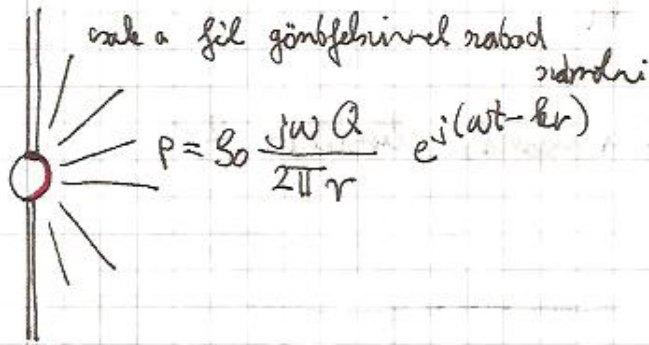 csak a fél gömbfelszínnel szabad
számolni
p = ρ₀ jωQ / 2πr e^j(ωt-kr)